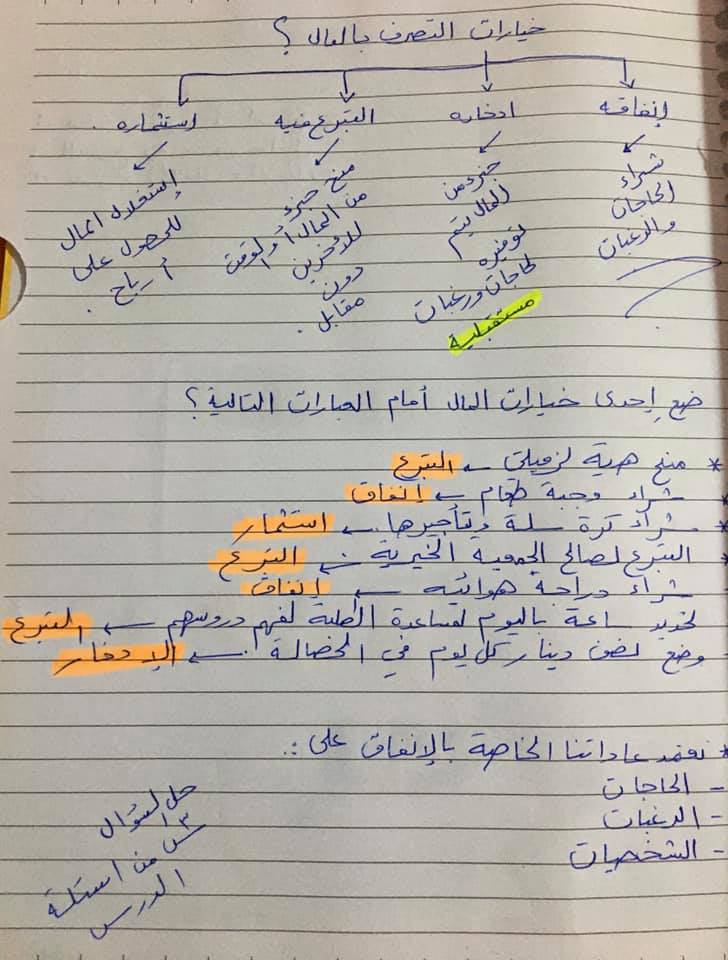 خيارات التصرف بالمال ؟
إنفاقه
ادخاره
التبرع فيه
استثماره .
شراء
الحاجات
والرغبات
جزء من
المال يتم
توفيره
لحاجات ورغبات
مستقبلية
منح جزء
من المال أو الوقت
للآخرين
دون
مقابل .
إستغلال المال
للحصول على
أرباح .
ضع إحدى خيارات المال أمام العبارات التالية ؟
* منح هدية لزميلتي ← التبرع
شراء وجبة طعام ← إنفاق
* شراء كرة سلة وتأجيرها . ← استثمار
* التبرع لصالح الجمعيه الخيرية ← التبرع
شراء دراجة هوائيه ← إنفاق
تحديد ساعة باليوم لمساعدة الطلبة لفهم دروسهم ← التبرع
وضع نصف دينار كل يوم في الحصالة . ← الإدخار
* تعتمد عاداتنا الخاصة بالإنفاق على :.
- الحاجات
- الرغبات
- الشخصيات
حل لسؤال
س٣ من اسئلة
الدرس